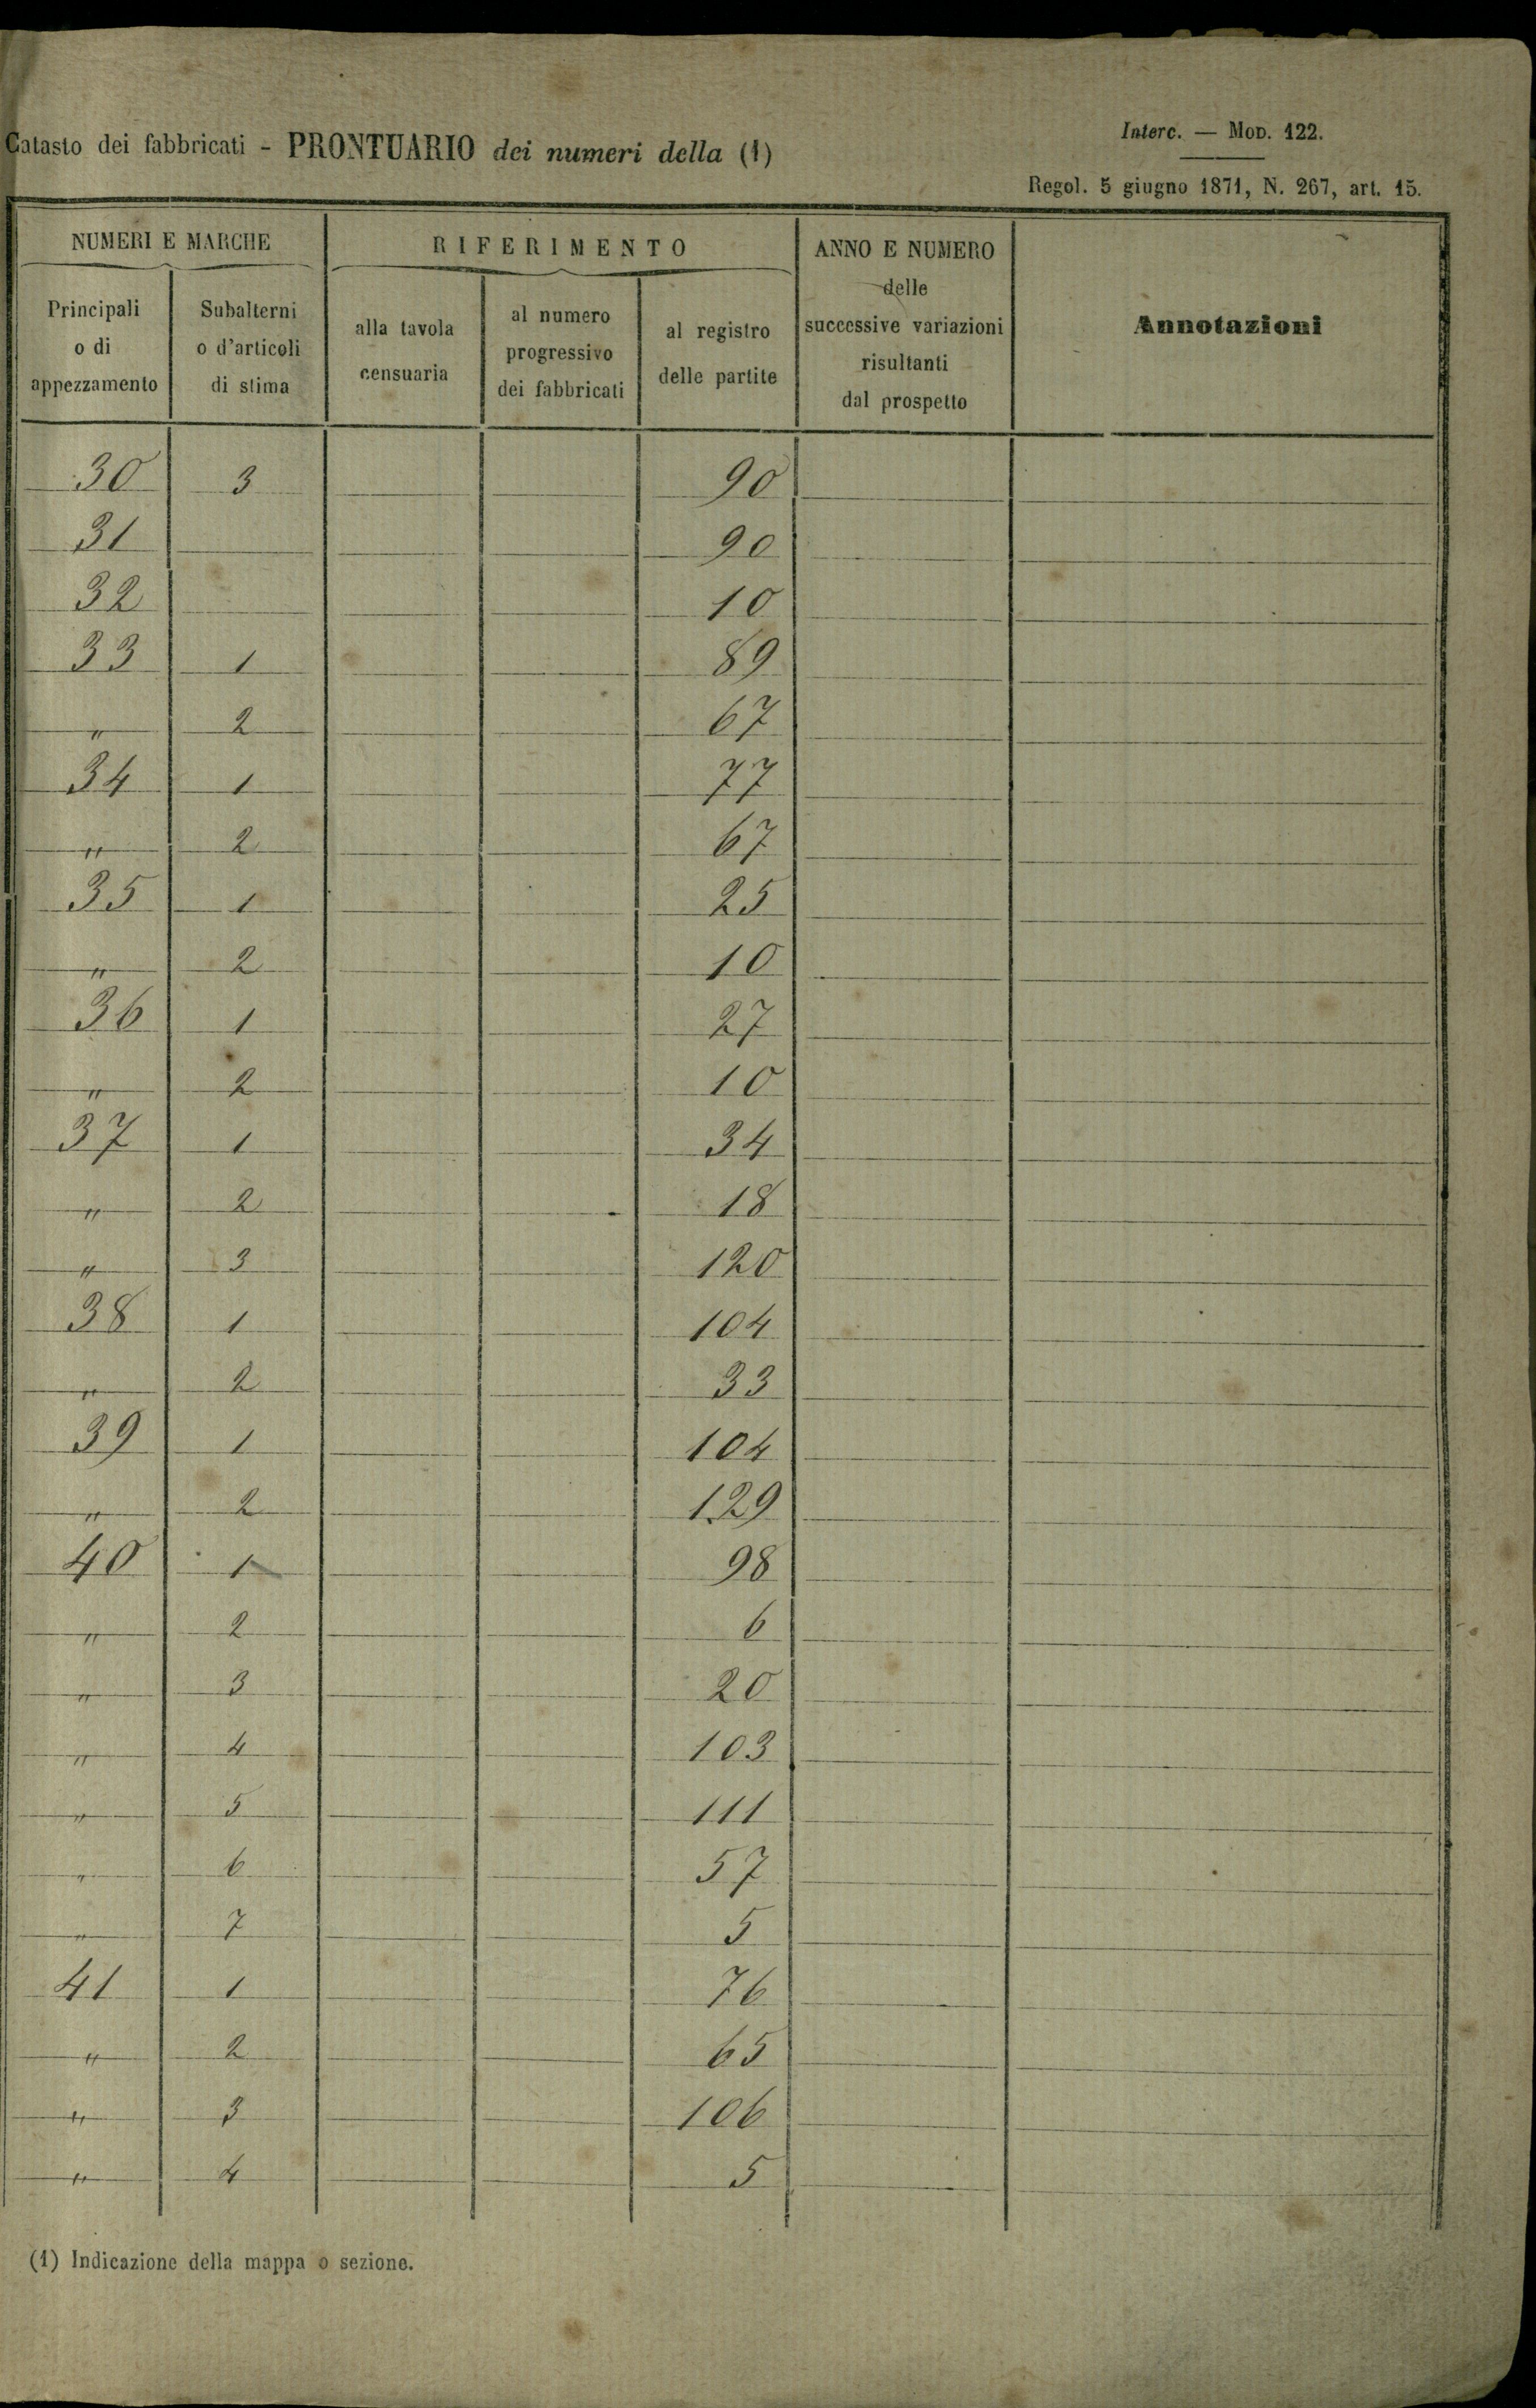 Catasto dei fabbricati - PRONTUARIO dei numeri della (1)
Interc. — MOD. 122.
Regol. 5 giugno 1871, N. 267, art. 15.
NUMERI E MARCHE RIFERIMENTO ANNO E NUMERO delle successive variazioni risultanti dal prospetto Annotazioni
Principali o di appezzamento Subalterni o d'articoli di stima alla tavola censuaria al numero progressivo dei fabbricati al registro delle partite
30 3 90
31 90
32 10
33 1 89
" 2 67
34 1 77
" 2 67
35 1 25
" 2 10
36 1 27
" 2 10
37 1 34
" 2 18
" 3 120
38 1 104
" 2 33
39 1 104
" 2 129
40 1 98
" 2 6
" 3 20
" 4 103
" 5 111
" 6 57
" 7 5
41 1 76
" 2 65
" 3 106
" 4 5
(1) Indicazione della mappa o sezione.